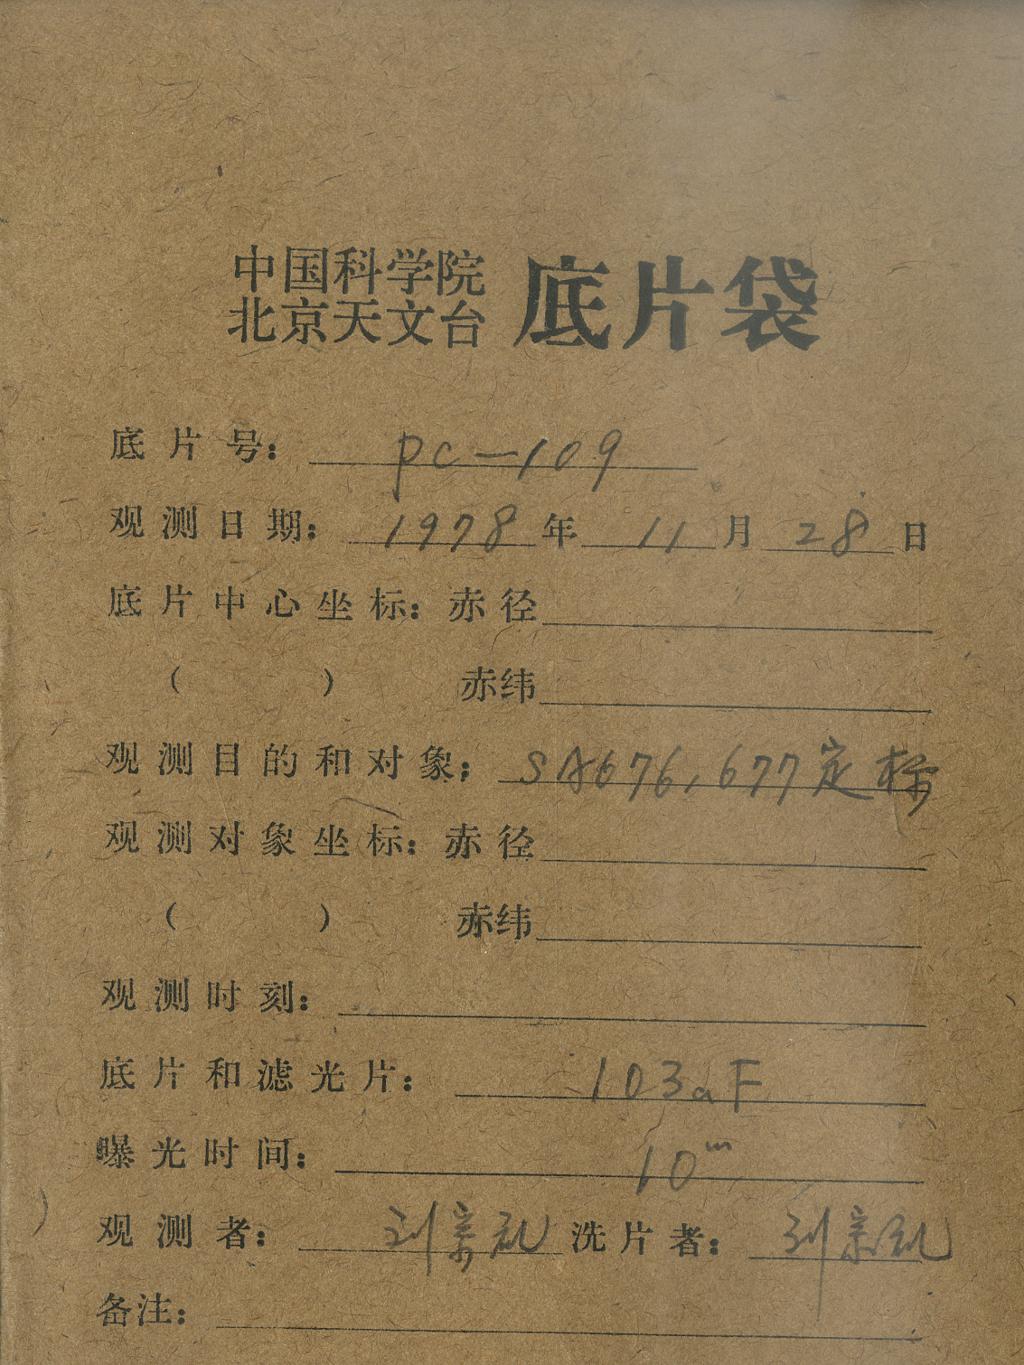 中国科学院
北京天文台 底片袋
底片号： PC-109
观测日期： 1978 年 11 月 28 日
底片中心坐标：赤径
（ ） 赤纬
观测目的和对象： SA676,677定标
观测对象坐标：赤径
（ ） 赤纬
观测时刻：
底片和滤光片： 103aF
曝光时间： 10m
观测者： 刘宗礼 洗片者： 刘宗礼
备注：